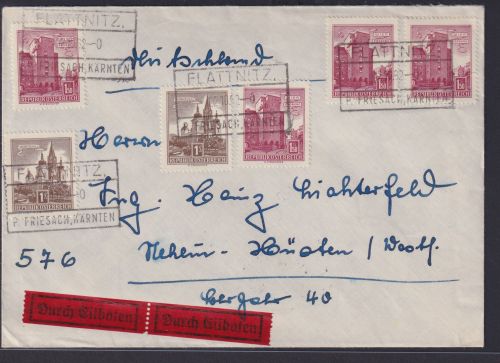 FLATTNITZ.
P. FRIESACH, KÄRNTEN
REPUBLIK ÖSTERREICH
Deutschland
FLATTNITZ.
P. FRIESACH, KÄRNTEN
REPUBLIK ÖSTERREICH
REPUBLIK ÖSTERREICH
FLATTNITZ.
P. FRIESACH, KÄRNTEN
REPUBLIK ÖSTERREICH
REPUBLIK ÖSTERREICH
FLATTNITZ
P. FRIESACH, KÄRNTEN
REPUBLIK ÖSTERREICH
Herrn
Ing. Heinz Lichterfeld
576 Neheim-Hüsten / Westf.
40
Durch Eilboten Durch Eilboten